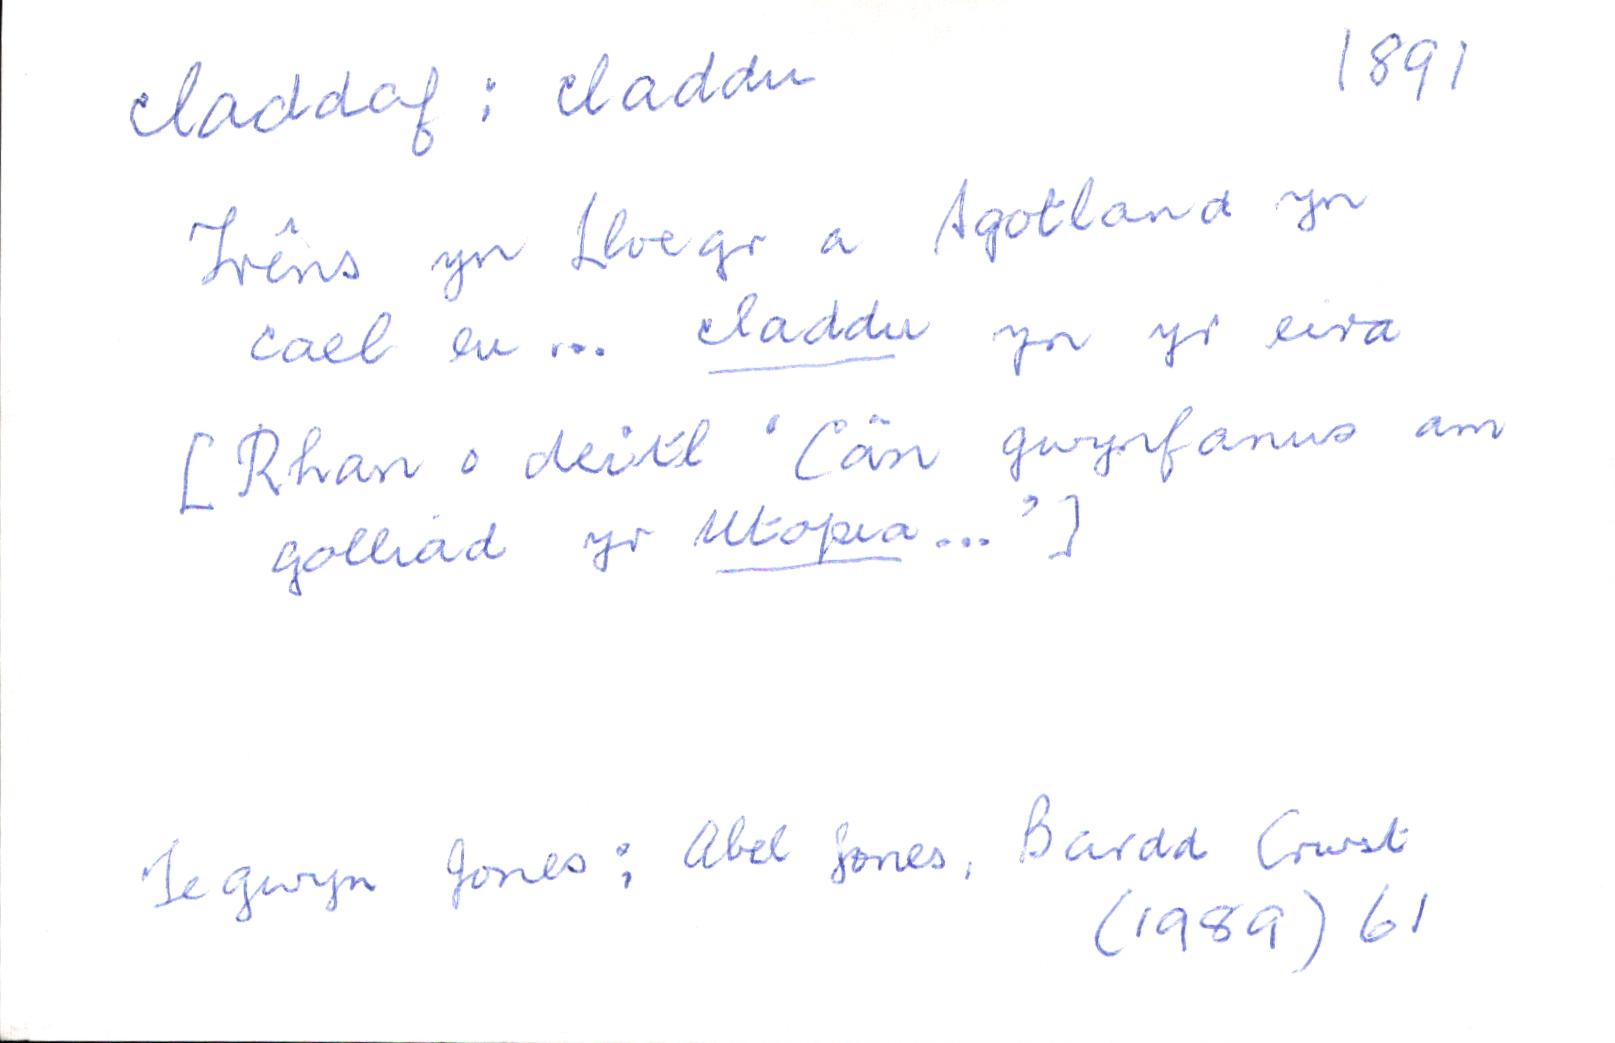 claddaf : claddu 1891
Trêns yn Lloegr a Sgotland yn
cael eu ... claddu yn yr eira
[Rhan o deitl 'Cân gwynfanus am
golliad yr Utopia ...']
Tegwyn Jones : Abel Jones, Bardd Crwst
(1989) 61